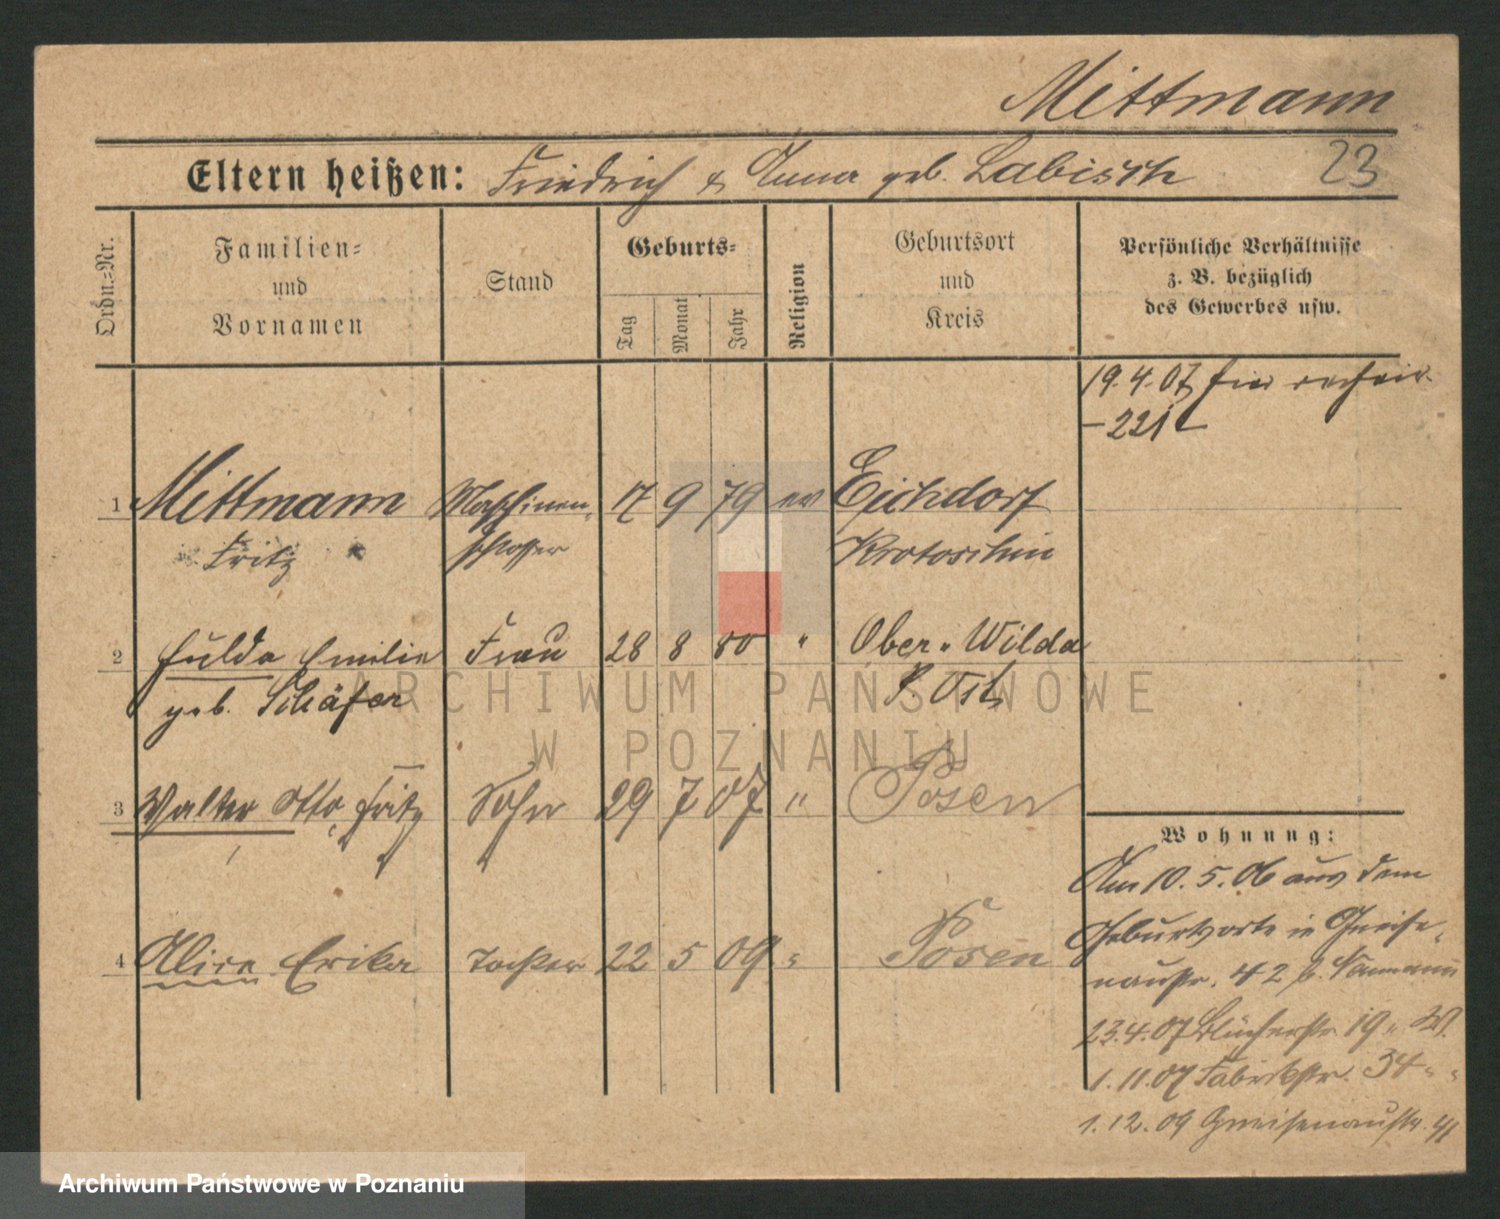 Mittmann
Eltern heißen: Friedrich & Anna geb. Labisch 23
Ordn.=Nr.
Familien=
und
Vornamen
Stand
Geburts=
Tag
Monat
Jahr
Religion
Geburtsort
und
Kreis
Persönliche Verhältnisse
z. B. bezüglich
des Gewerbes usw.
19.4.07
-221-
1 Mittmann Maschinen- 17 9 79 ev Eichdorf
Fritz schlosser Krotoschin
2 Hulda Emilie Frau 28 8 80 " Ober-Wilda
geb. Schäfer P. Ost
3 Walter Otto, Fritz Sohn 29 7 07 " Posen
4 Alice Erika Tochter 22 5 09 " Posen
Wohnung:
Am 10.5.06 aus dem
Geburtsorte in Gneise-
naustr. 42 b. Naumann
23.4.07 Blücherstr. 19 " W.
1.11.07 Fabrikstr. 34 " "
1.12.09 Gneisenaustr. 41
ARCHIWUM PAŃSTWOWE
W POZNANIU
Archiwum Państwowe w Poznaniu